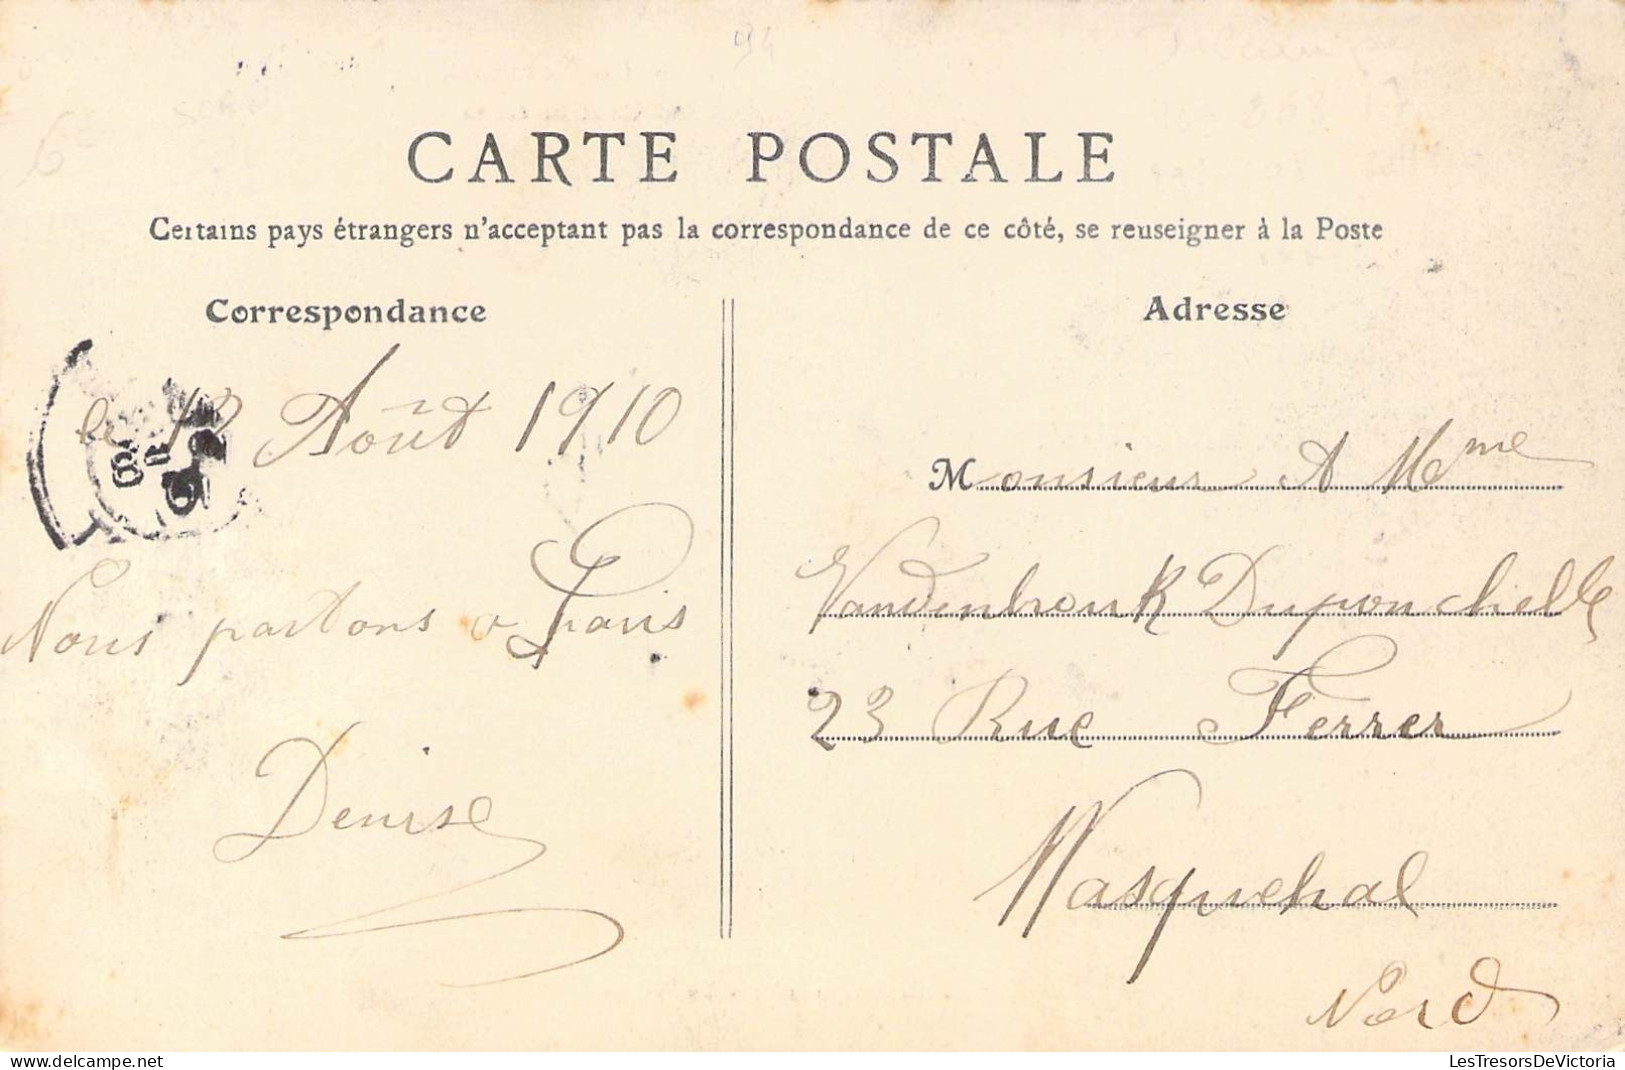 CARTE POSTALE
Certains pays étrangers n'acceptant pas la correspondance de ce côté, se reuseigner à la Poste
Correspondance
le 12 Août 1910
Nous partons a Paris
Denise
Adresse
Monsieur A Mme
Vandenbrouk Duponchelle
23 Rue Ferrer
Wasquehal
Nord
LesTresorsDeVictoria